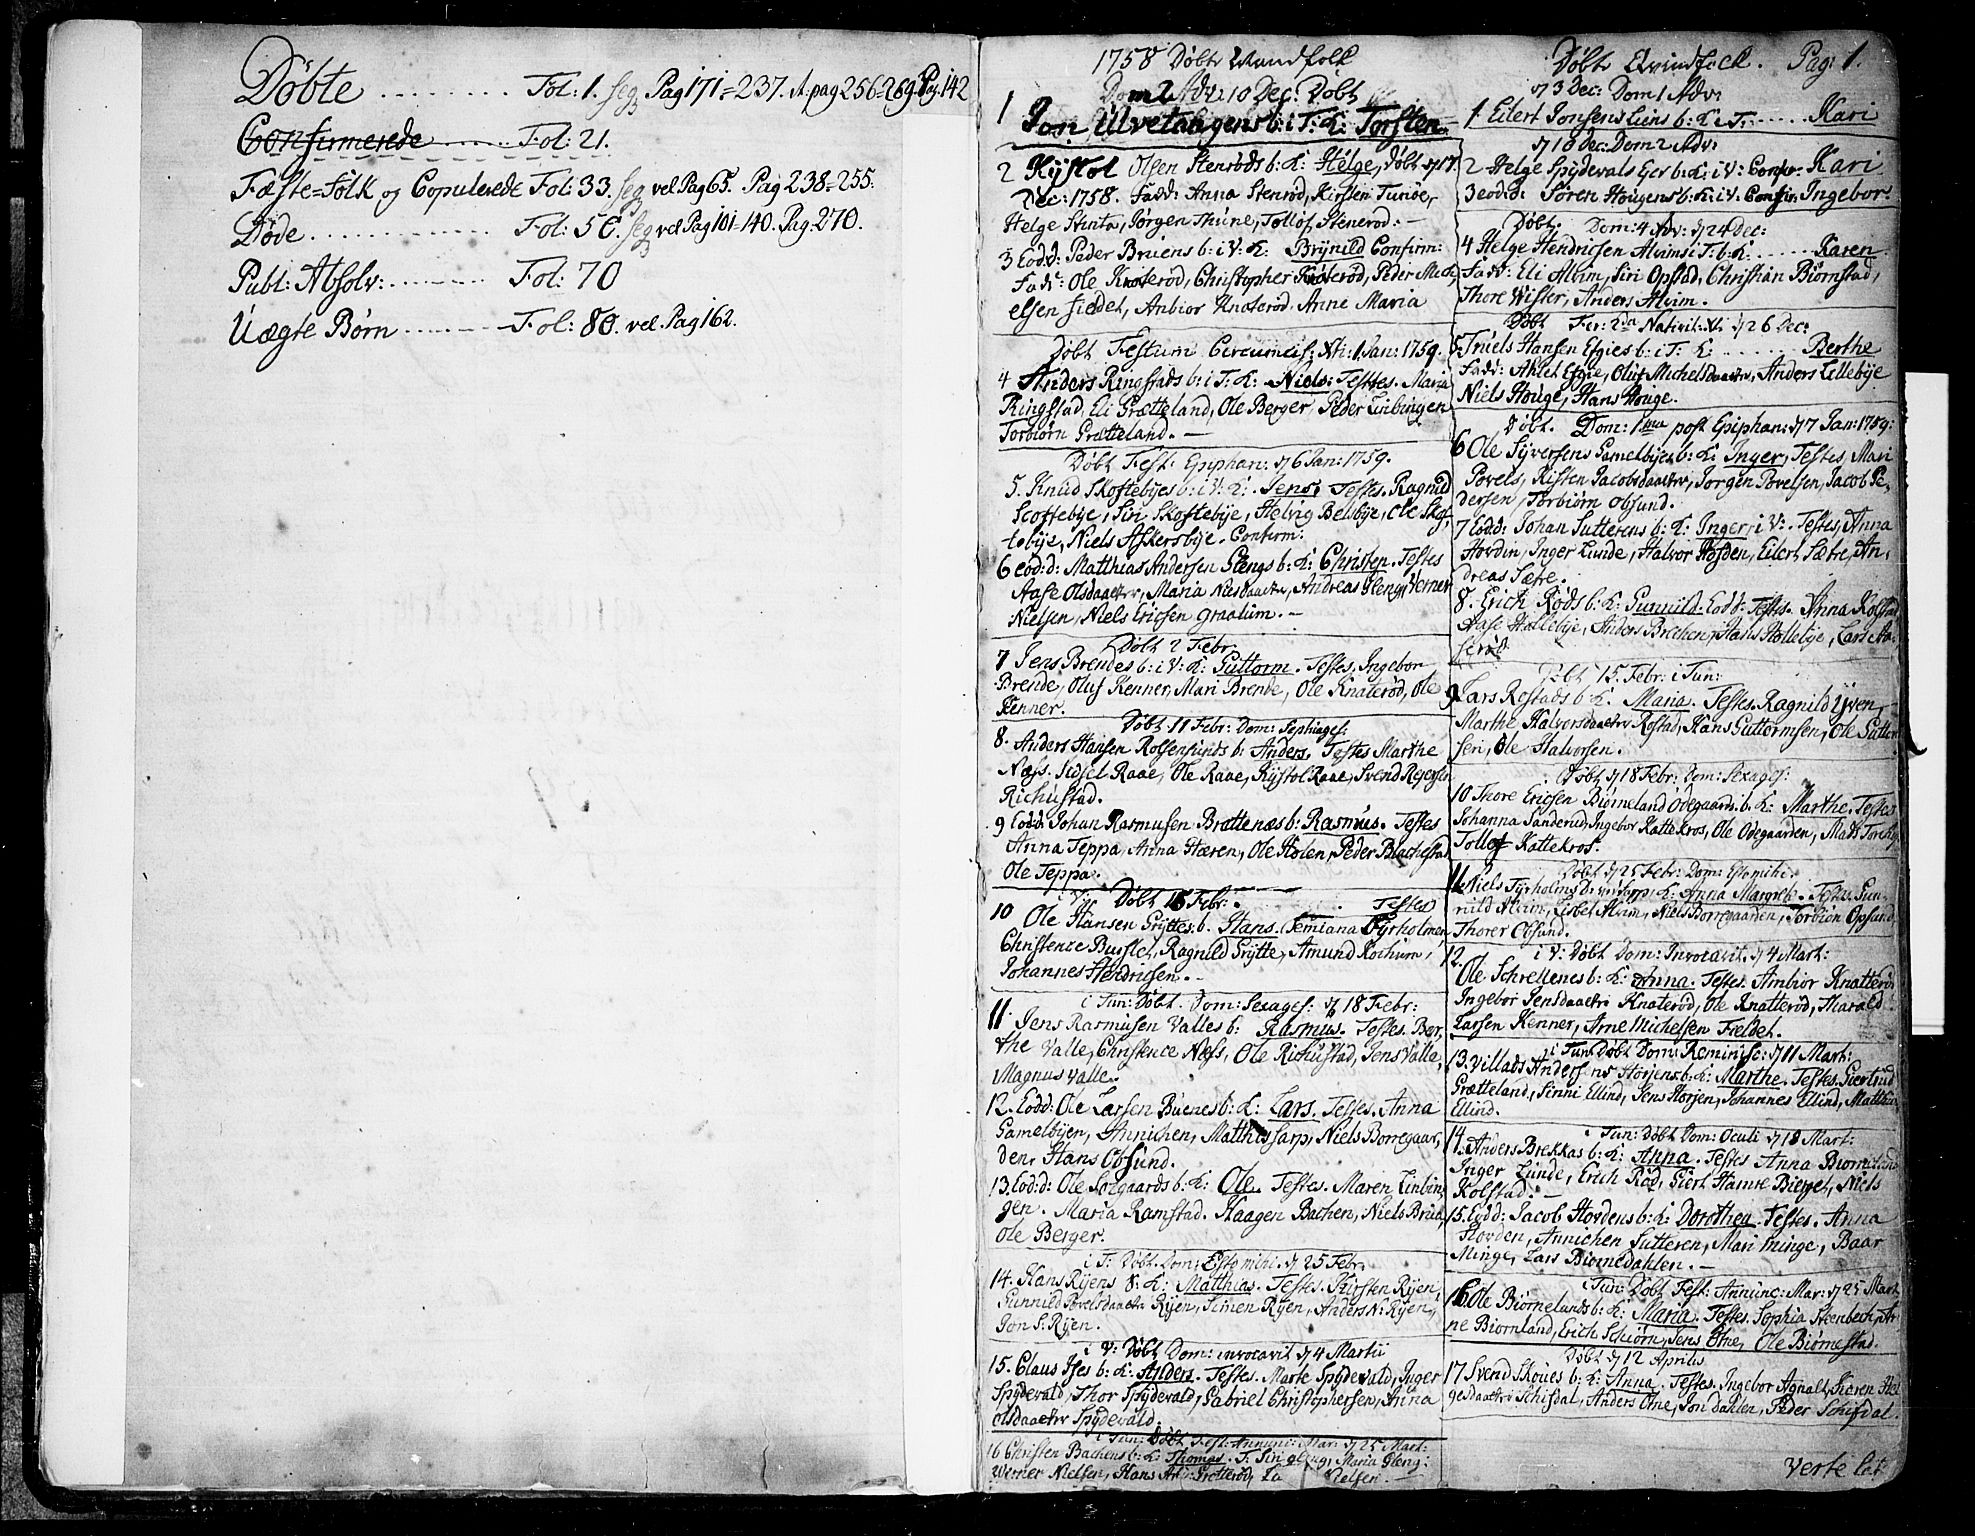 Døbte ........ Fol: 1. seq Pag 171=237. it pag 256=269. Pag. 142
Confirmerede ........ Fol: 21.
Fæste=folk og Copulerede Fol: 33. seq vel Pag 65. Pag 238=255.
Døde ........ Fol: 50. seq vel Pag 101=140. Pag: 270.
Publ: Absolv: ........ Fol: 70
Uægte Børn ........ Fol: 80. vel. Pag 162.
1758 Døbte Mandfolk
Dom 2 Adv: 10 Dec: Døbt
1 Jon Ulvetangens b: i T: K: Torsten.
2 Kystol Olsen Stenrøds b: K: Helge, Døbt d 17
Dec: 1758. Fadd: Anna Stenrød, Kirsten Tunøe,
Helge Stinta, Jørgen Thune, Tollof Stenerød. –
3 Eodd: Peder Bruens b: i V: K: Brynild Confirm:
Fadd: Ole Knaterød, Christopher Knaterød, Peder Mich,
elsen fieldet, Anbior Knaterød, Anne Maria
Døbt Festum Circumcis: Xti: 1 Jan: 1759.
4 Anders Ringstads b: i T: K: Niels: Testes. Maria
Ringstad, Eli Grætteland, Ole Berger, Peder Linbingen
Torbiørn Grætteland. –
Døbt Fest: Epiphan: d 6 Jan: 1759.
5. Knud Skoftebyes b: i V: K: Jens, Testes. Ragnild
Scoftebye, Siri Skoftebye, Helvig Belsbye, Ole Skof,
tebye, Niels Askersbye. Confirm:
6 eod:d: Matthias Andersen Glengs b: K: Christen. Testes
Aase Olsdaatter, Maria Nilsdaatter, Andreas Gleng, Verner
Nielsen, Niels Ericsen graalum. –
Døbt 2 Febr:
7 Jens Brendes b: i V: K: Guttorm. Testes, Ingebor
Brende, Oluf Kenner, Mari Brende, Ole Knaterød, Ole
Kenner.
Døbt 11 Febr: Dom: Septuages:
8. Anders Hansen Rolfensunds b: Anders, Testes Marthe
Næss. Sidsel Raae, Ole Raae, Kystol Raae, Svend Rejersen
Richustad.
9 Eodd: Johan Rasmusen Brattenæs b: Rasmus. Testes
Anna Teppa, Anna Hæren, Ole Holen, Peder Blachestad
Ole Teppa.
i V: Døbt 16 Febr: Testes
10 Ole Hansen Gryttes b. Hans. Semiana Tyrholmen
Christence Busterl, Ragnild Grytte, Amund Kochum,
Johannes Hendricsen. –
i Tun: Døbt. Dom: Sexages: d 18 Febr:
11 Jens Rasmusen Valles b: Rasmus. Testes. Ber,
the Valle, Christence Næss, Ole Richustad, Jens Valle,
Magnus Valle.
12. Eodd: Ole Larsen Buenes b: K: Lars. Testes. Anna
Gamelbyen, Annichen, Matthis Sarp, Niels Borregaar,
den, Hans Obsund.
13. Eod:d: Ole Solgaards b: K: Ole. Testes. Maren Linbin,
gen. Maria Ramstad. Haagen Bachen, Niels Brua,
Ole Berger.
i T: Døbt. Dom: Esto mihi. d 25 Febr:
14. Hans Ryens b: K: Matthias. Testes. Kirsten Ryen,
Gunnild Povelsdaatr Ryen, Simen Ryen, Anders N: Ryen,
Jon S: Ryen.
i V: Døbt Dom: invocavit d 4 Martii
15. Claus Ises b: K: Anders. Testes. Marte Spydevald, Inger
Spydevald, Thor Spydevald, Gabriel Christophersen, Anna
Olsdaatter Spydevald.
i Tun: Døbt, Fest: Annunc: Mar: d 25 Mart:
16 Christen Bachens b: K: Thomas. T: Siri gleng, Maria Gleng:
Werner Nielsen, Hans Grotterød, Nielsen.
Døbt Qvindfolck. Pag: 1.
d 3 Dec: Dom 1 Adv:
1 Eilert Jonsens Liens b: K: i T: ..... Kari
d 10 Dec: Dom 2 Adv:
2 Helge Spydevals Eier b: K: i V: Confir: Kari
3 eod:d: Søren Hougens b: K: i V: Confir: Ingebor.
Døbt. Dom: 4 Adv: d 24 Dec:
4 Helge Hendricsen Alvims i T: b: K: ..... Karen
Fadd: Eli Alvim, Siri Opstad, Christian Biørnstad,
Thore Wister, Anders Alvim.
Døbt Fer: 2da Nativit: Xti d 26 Dec:
5. Truels Hansen Efgies b: i T: K: ..... Berthe
Fadd: Ahlet Efgie, Oluf Michelsdaatter, Anders Lillebye
Niels Houge, Hans Houge.
Døbt. Dom: 1ma post Epiphan: d 7 Jan: 1759:
6 Ole Syversens Gamelbyen b: K: Inger, Testes, Mari
Povels, Kisten Jacobsdaatter, Jørgen Povelsen, Jacob Pe,
dersen, Torbiørn Obsund.
7 Eodd: Johan Sutterens b: K: Inger, i V: Testes, Anna
Hovden, Inger Lunde, Halvor Hovden, Eilert Sætre, An,
dreas Sætre.
8. Erich Røds b: K: Gunnild. Eodd: Testes. Anna Kolstad
Aase Hallebye, Anders Brechen, Hans Hollebye, Lars Aa,
serød
Døbt 15. Febr: i Tun:
9 Lars Rostads b: K: Maria. Testes. Ragnild Yven,
Marthe Halvorsdaatter Rostad, Hans Guttormsen, Ole Gutter
sen, Ole Halvorsen.
Døbt d 18 Febr: Dom: Sexages:
10 Thore Ericsen Biørneland Ødegaards b: K: Marthe. Testes
Johanna Sanderud, Ingebor Kattekros, Ole Odegaarden, Mads
Tollef Kattekros.
Døbt d 25 Febr: Dom: Esto mihi.
11 Niels Tyrholms b: K: Anna Margrete. Testes Gun,
nild Alvim, Lisbet Alvim, Niels Borregaarden, Torbiøn Opsund
Thorer Obsund.
12. i V: Døbt Dom: Invocavit. d 4 Mart:
Ole Schrellenes b: K: Anna. Testes. Ambior Knatterød
Ingebor Jensdaatter Knaterød, Ole Knatterød, Harald
Larsen Kenner, Arne Michelsen Fieldet.
i Tun: Døbt Dom: Reminisc: d 11 Mart:
13. Villads Andersens Horjens b: K: Marthe. Testes. Giertrud
Grætteland, Sinni Ellind, Jens Horjen, Johannes Ellind, Matthis
Ellind.
i Tun: Døbt Dom: Oculi d 18 Mart:
14. Anders Brekkas b: K: Anna. Testes Anna Biørneland
Inger Lunde, Erich Rød, Giert Hamre Bierget, Niels
Kolstad. –
15. Eodd: Jacob Hovdens b: K: Dorothea. Testes. Anna
Hovden, Annichen Sutteren, Mari Minge, Baar
Minge, Lars Biørnedahlen. –
i Tun: Døbt Fest: Annunc: Mar: d 25 Mart
16. Ole Biørnelands b: K: Maria. Testes. Sophia Steenbech, Ar
ne Biørnland, Erich Schiørn, Jens Øtne, Ole Biørnestad.
Døbt d 12 Aprilis
17 Svend Skoues b: K: Anna. Testes. Ingebor Agnalt, Karen Hel
gesdaatter Schisdal, Anders Øtne, Jon Dahlen, Peder Schisdal.
verte